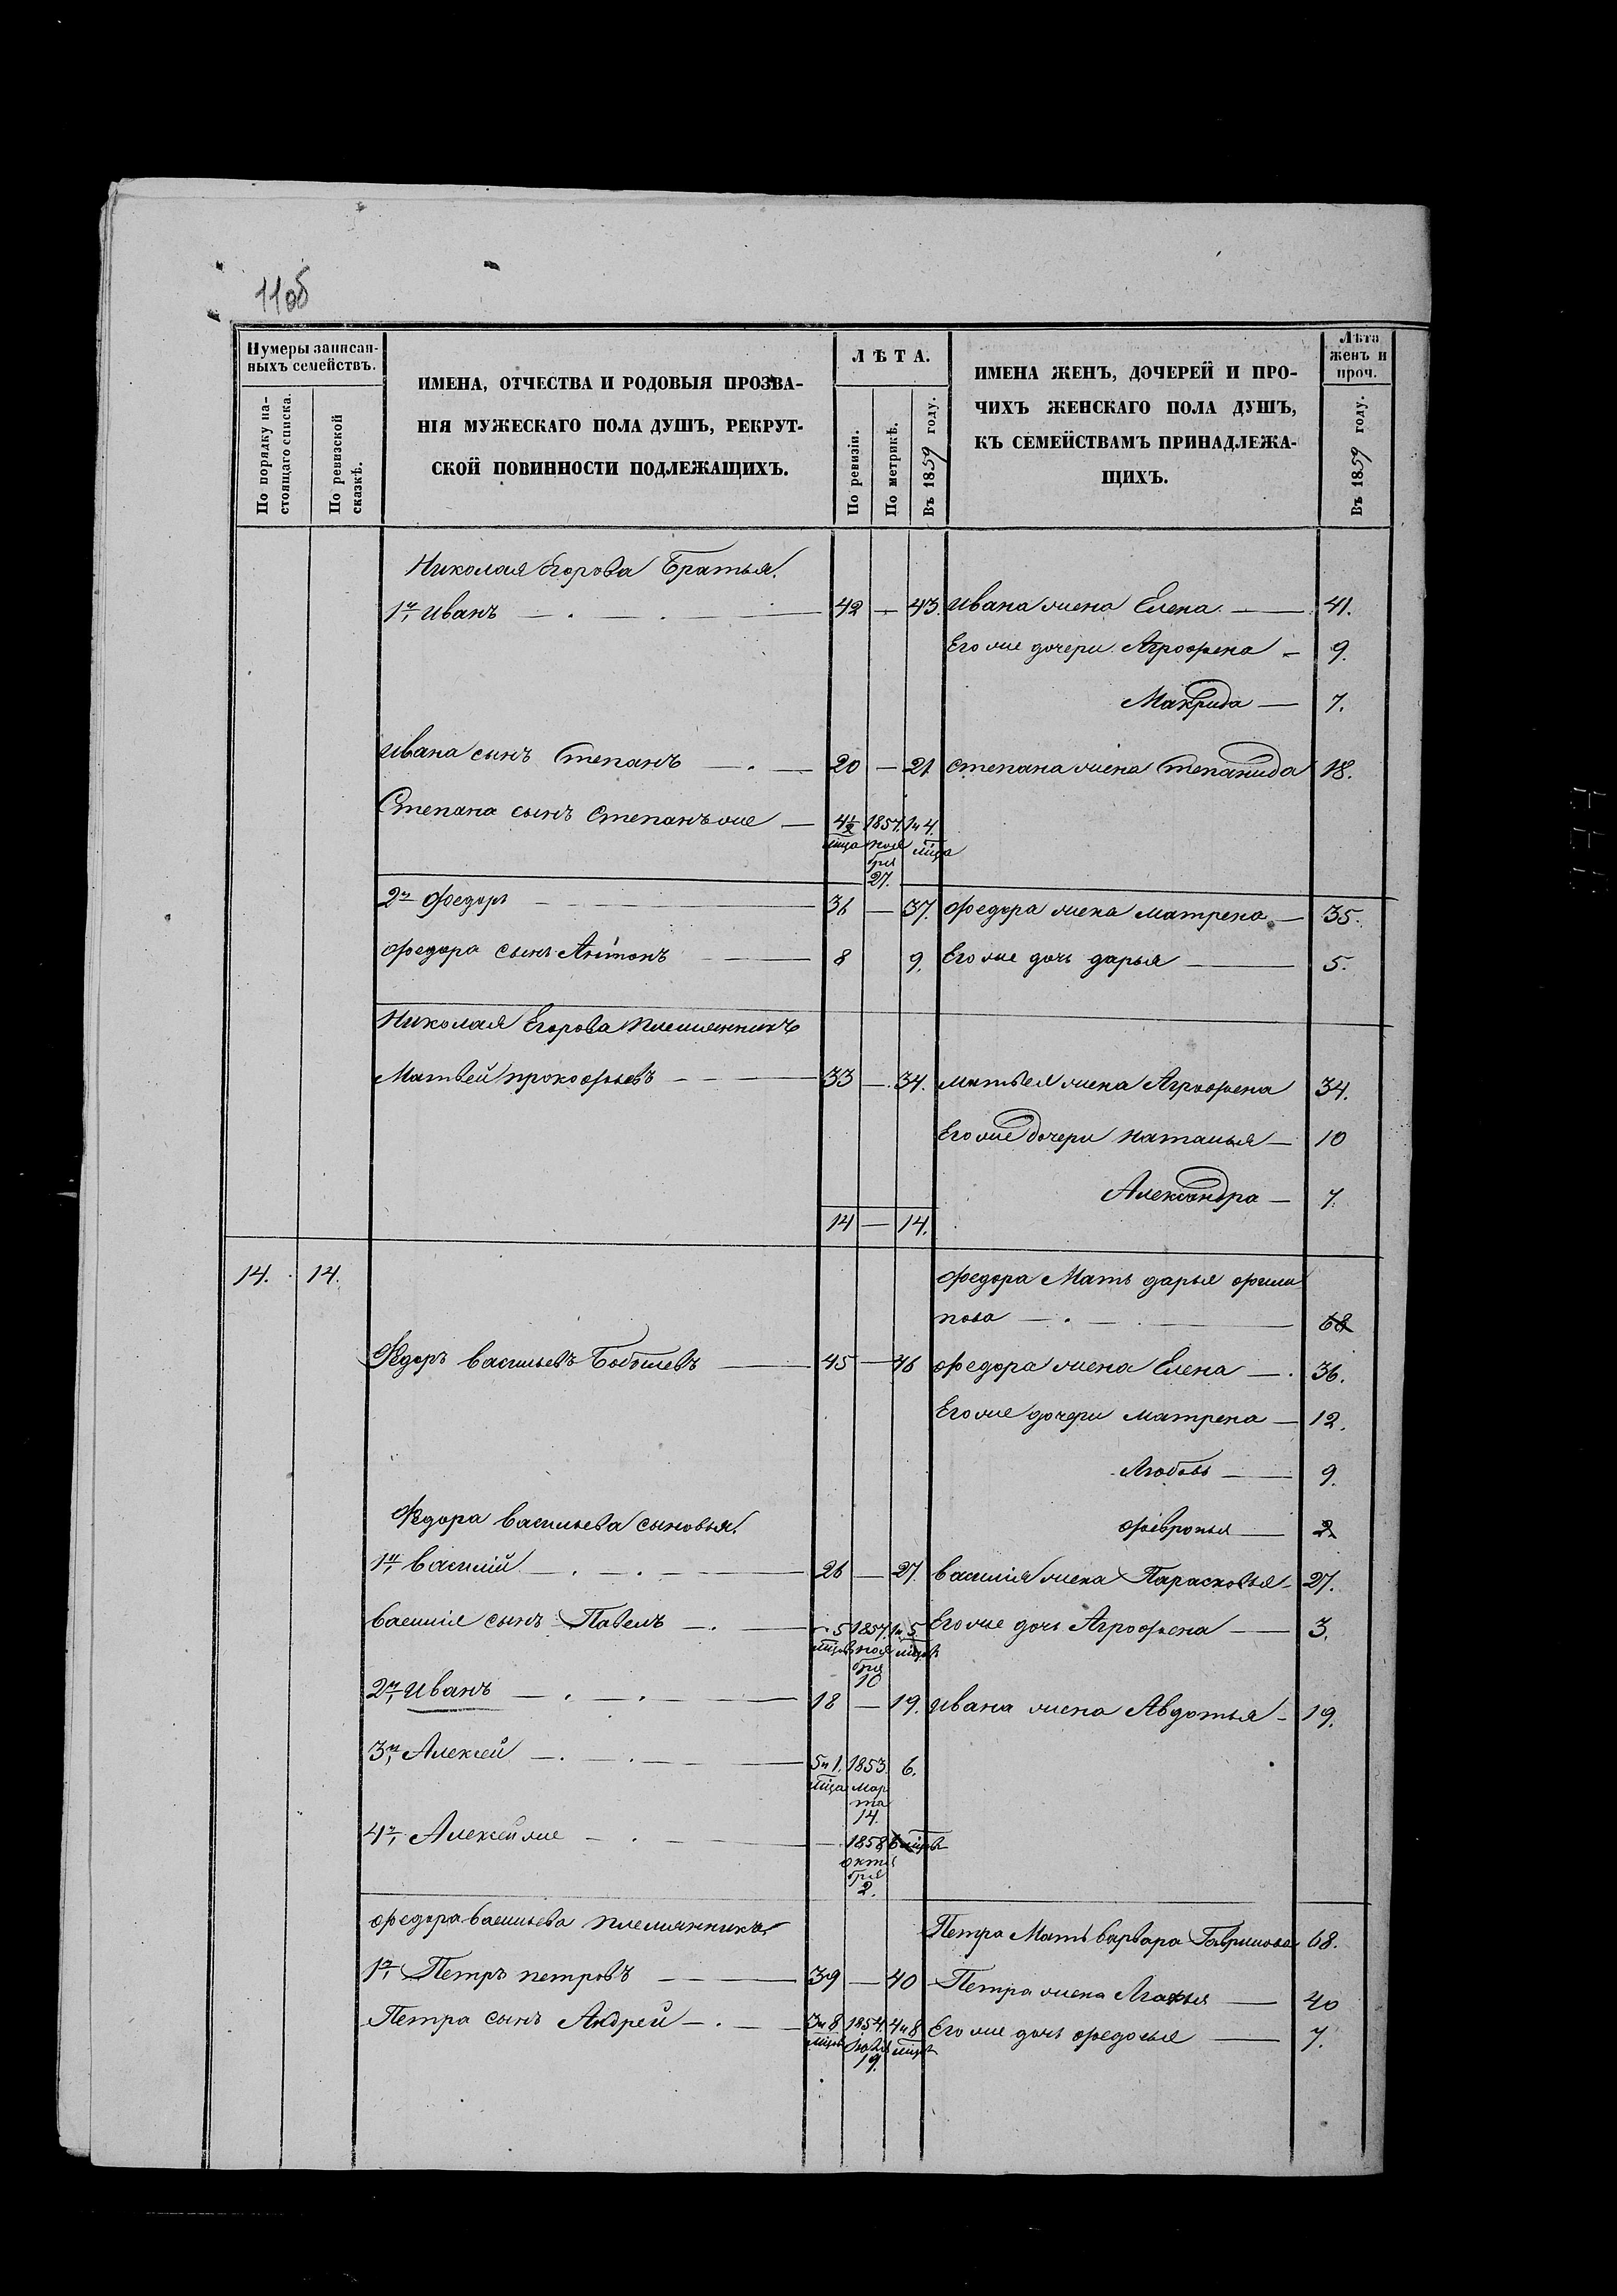 11об
Нумеры записан-
ныхъ семействъ.
По порядку на-
стоящаго списка.
По ревизской
сказкѣ.
ИМЕНА, ОТЧЕСТВА И РОДОВЫЯ ПРОЗВА-
НІЯ МУЖЕСКАГО ПОЛА ДУШЪ, РЕКРУТ-
СКОЙ ПОВИННОСТИ ПОДЛЕЖАЩИХЪ.
ЛѢТА.
По ревизіи.
По метрикѣ.
Въ 1859 году.
ИМЕНА ЖЕНЪ, ДОЧЕРЕЙ И ПРО-
ЧИХЪ ЖЕНСКАГО ПОЛА ДУШЪ,
КЪ СЕМЕЙСТВАМЪ ПРИНАДЛЕЖА-
ЩИХЪ.
Лѣта
женъ и
проч.
Въ 1859 году.
Николая Егорова Братья.
1й, Иванъ — 42 — 43. Ивана жена Елена — 41.
Его же дочери Агрофена — 9.
Макрида — 7.
Ивана сынъ Степанъ — 20 — 21 Степана жена Степанида 18.
Степана сынъ Степанъ же — 4½ 1857. 1и4.
мца ноя мца
бря
27.
2й Федоръ — 36 — 37. Федора жена Матрена — 35.
Федора сынъ Антонъ — 8 9. Его же дочь Дарья — 5.
Николая Егорова племянникъ
Матвей Прокофьевъ — 33 — 34. Матвея жена Агрофена 34.
Его же дочери Наталья — 10
Александра — 7.
14 — 14.
14. 14. Федора Мать Дарья Фили
пова — 68
Федоръ Васильевъ Бобылевъ — 45 — 46 Федора жена Елена — 36.
Его же дочери Матрена — 12.
Любовь — 9.
Федора Васильева сыновья. Февронья — 2
1й, Василій — 26 — 27. Василія жена Парасковья — 27.
Василія сынъ Павелъ — 5 1857. 1и5. Его же дочь Агрофена — 3.
мцовъ ноя мцовъ
бря
10
2й, Иванъ — 18 — 19. Ивана жена Авдотья — 19.
3й, Алексей — 5и1. 1853. 6.
мца мар
та
14.
4й, Алексей же — 1858 6 мцовъ
октя
бря
2.
Федора Васильева племянники Петра Мать Варвара Гаврилова 68.
1й, Петръ Петровъ — 39 — 40 Петра жена Агафья — 40
Петра сынъ Андрей — 3и8 1854. 4и8 Его же дочь Федосья — 7.
мцовъ мцовъ
19.